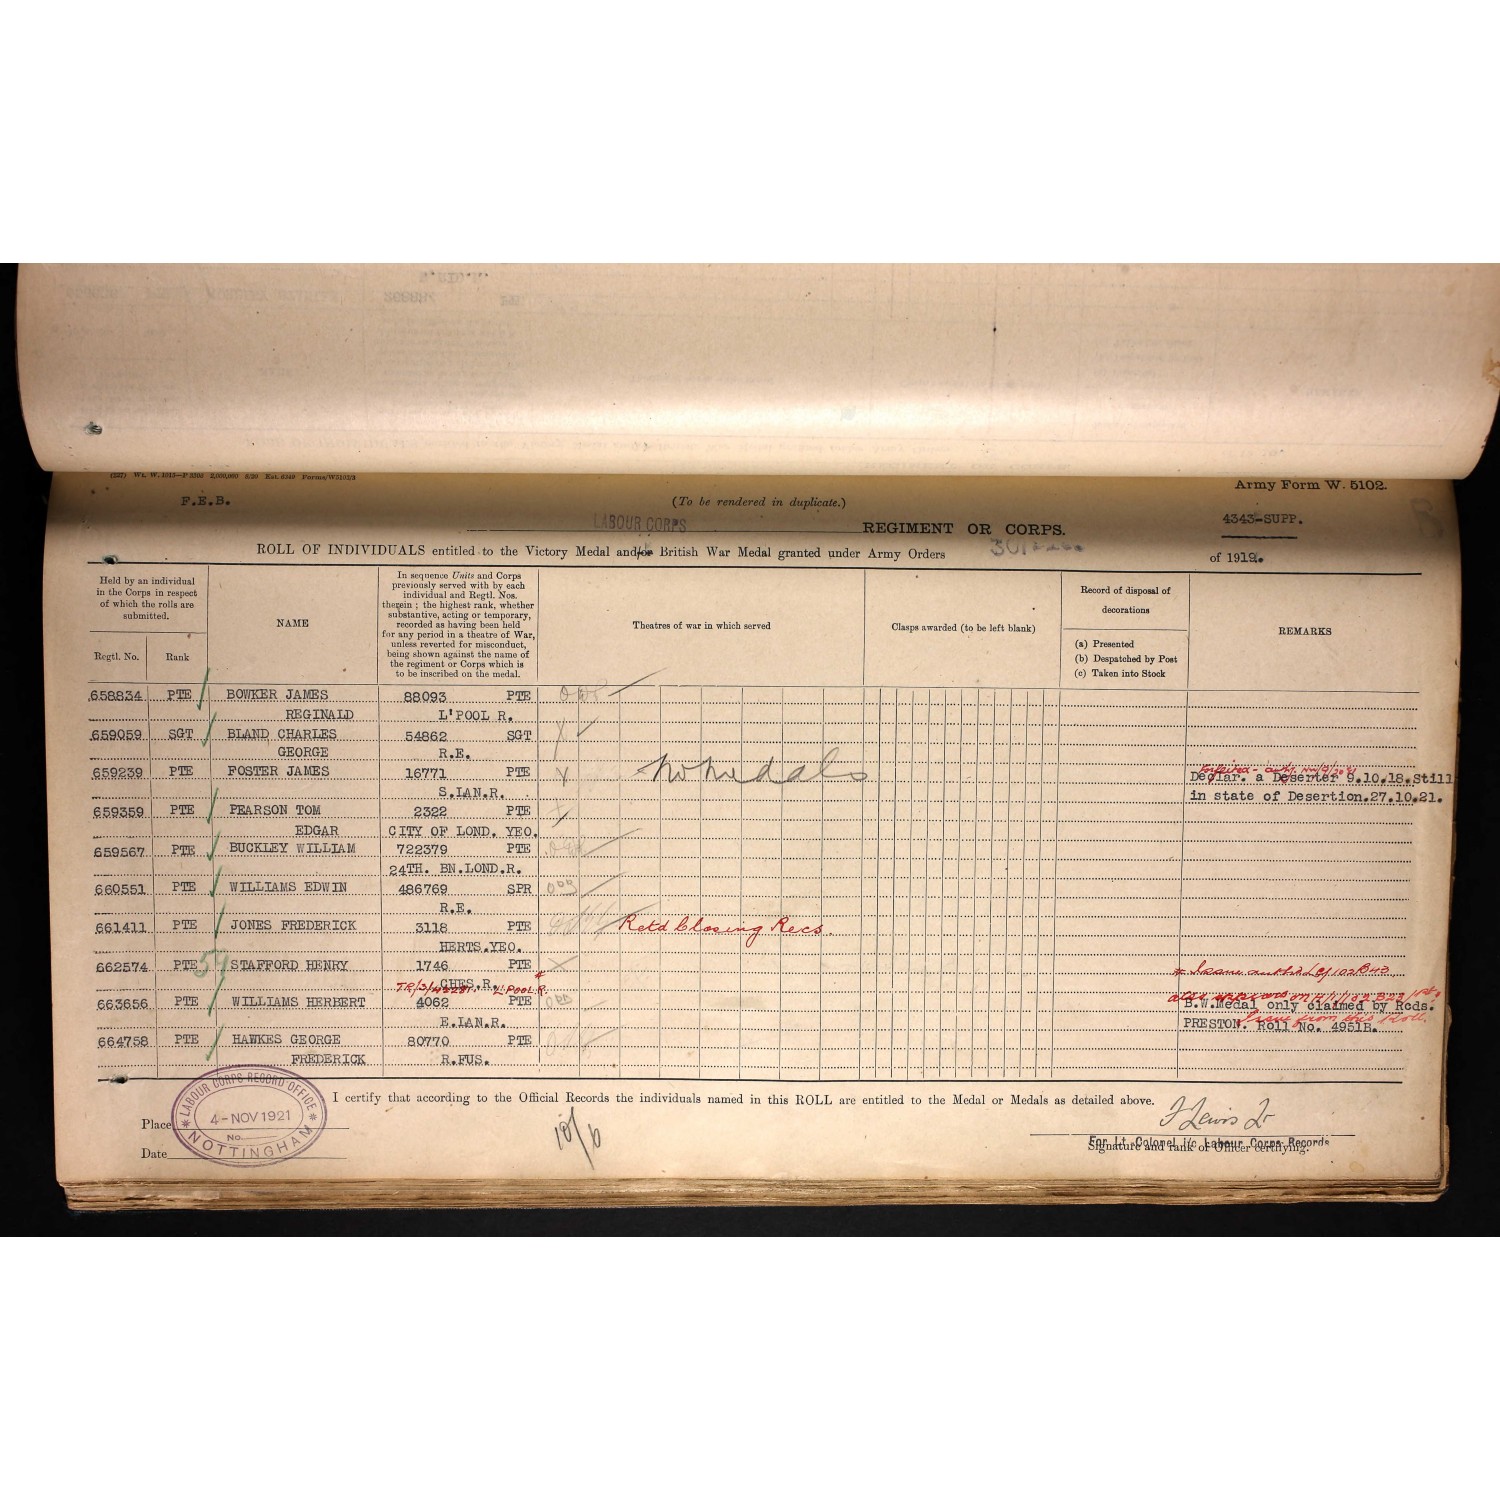 (227) Wt. W. 1015—P 3205 2,000,000 8/20 Est. 6349 Forms/W5102/3
Army Form W. 5102.
F.E.B.
(To be rendered in duplicate.)
4343-SUPP.
LABOUR CORPS REGIMENT OR CORPS.
ROLL OF INDIVIDUALS entitled to the Victory Medal and/or British War Medal granted under Army Orders of 1919.
Held by an individual
in the Corps in respect
of which the rolls are
submitted.
Regtl. No. Rank
NAME
In sequence Units and Corps
previously served with by each
individual and Regtl. Nos.
therein ; the highest rank, whether
substantive, acting or temporary,
recorded as having been held
for any period in a theatre of War,
unless reverted for misconduct,
being shown against the name of
the regiment or Corps which is
to be inscribed on the medal.
Theatres of war in which served
Clasps awarded (to be left blank)
Record of disposal of
decorations
(a) Presented
(b) Despatched by Post
(c) Taken into Stock
REMARKS
658834 PTE BOWKER JAMES 88093 PTE
REGINALD L'POOL R.
659059 SGT BLAND CHARLES 54862 SGT X
GEORGE R.E.
659239 PTE FOSTER JAMES 16771 PTE X No medals Declar. a Deserter 9.10.18.Still
S.LAN.R. in state of Desertion.27.10.21.
659359 PTE PEARSON TOM 2322 PTE X
EDGAR CITY OF LOND. YEO.
659567 PTE BUCKLEY WILLIAM 722379 PTE
24TH. BN.LOND.R.
660551 PTE WILLIAMS EDWIN 486769 SPR
R.E.
661411 PTE JONES FREDERICK 3118 PTE Retd Closing Recs.
HERTS.YEO.
662574 PTE STAFFORD HENRY 1746 PTE X
CHES.R. L'POOL R.
663656 PTE WILLIAMS HERBERT 4062 PTE B.W.Medal only claimed by Rcds.
E.LAN.R. PRESTON. Roll No. 4951B.
Issue from this Roll.
664758 PTE HAWKES GEORGE 80770 PTE
FREDERICK R.FUS.
I certify that according to the Official Records the individuals named in this ROLL are entitled to the Medal or Medals as detailed above.
LABOUR CORPS RECORD OFFICE
4-NOV 1921
No.
NOTTINGHAM
Place
Date
For Lt. Colonel i/c Labour Corps Records
Signature and rank of Officer certifying.